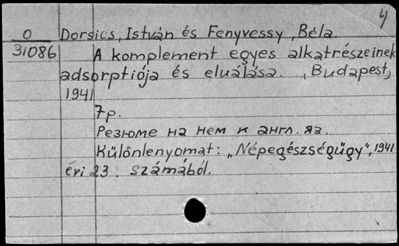 4
O Dorsics, István és Fenyvessy, Béla.
31086 A komplement egyes alkatrészeinek
adsorptiója és eluálása. , Budapest,
1941
7p.
Резюме на нем и англ. яз.
Különlenyomat: „Népegészségügy”, 1941
évi 23. számából.